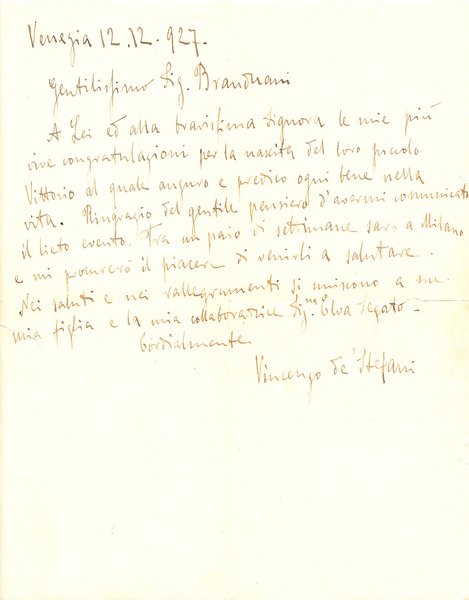 Venezia 12.12.927.
Gentilissimo Sig. Brandmani
A Lei ed alla bravissima Signora le mie più
vive congratulazioni per la nascita del loro piccolo
Vittorio al quale auguro e predico ogni bene nella
vita. Ringrazio del gentile pensiero d'avermi comunicato
il lieto evento. Fra un paio di settimane sarò a Milano
e mi procurerò il piacere di venirli a salutare.
Nei saluti e nei rallegramenti si uniscono a me
mia figlia e la mia collaboratrice Sig.na Elva Segato –
Cordialmente
Vincenzo de' Stefani